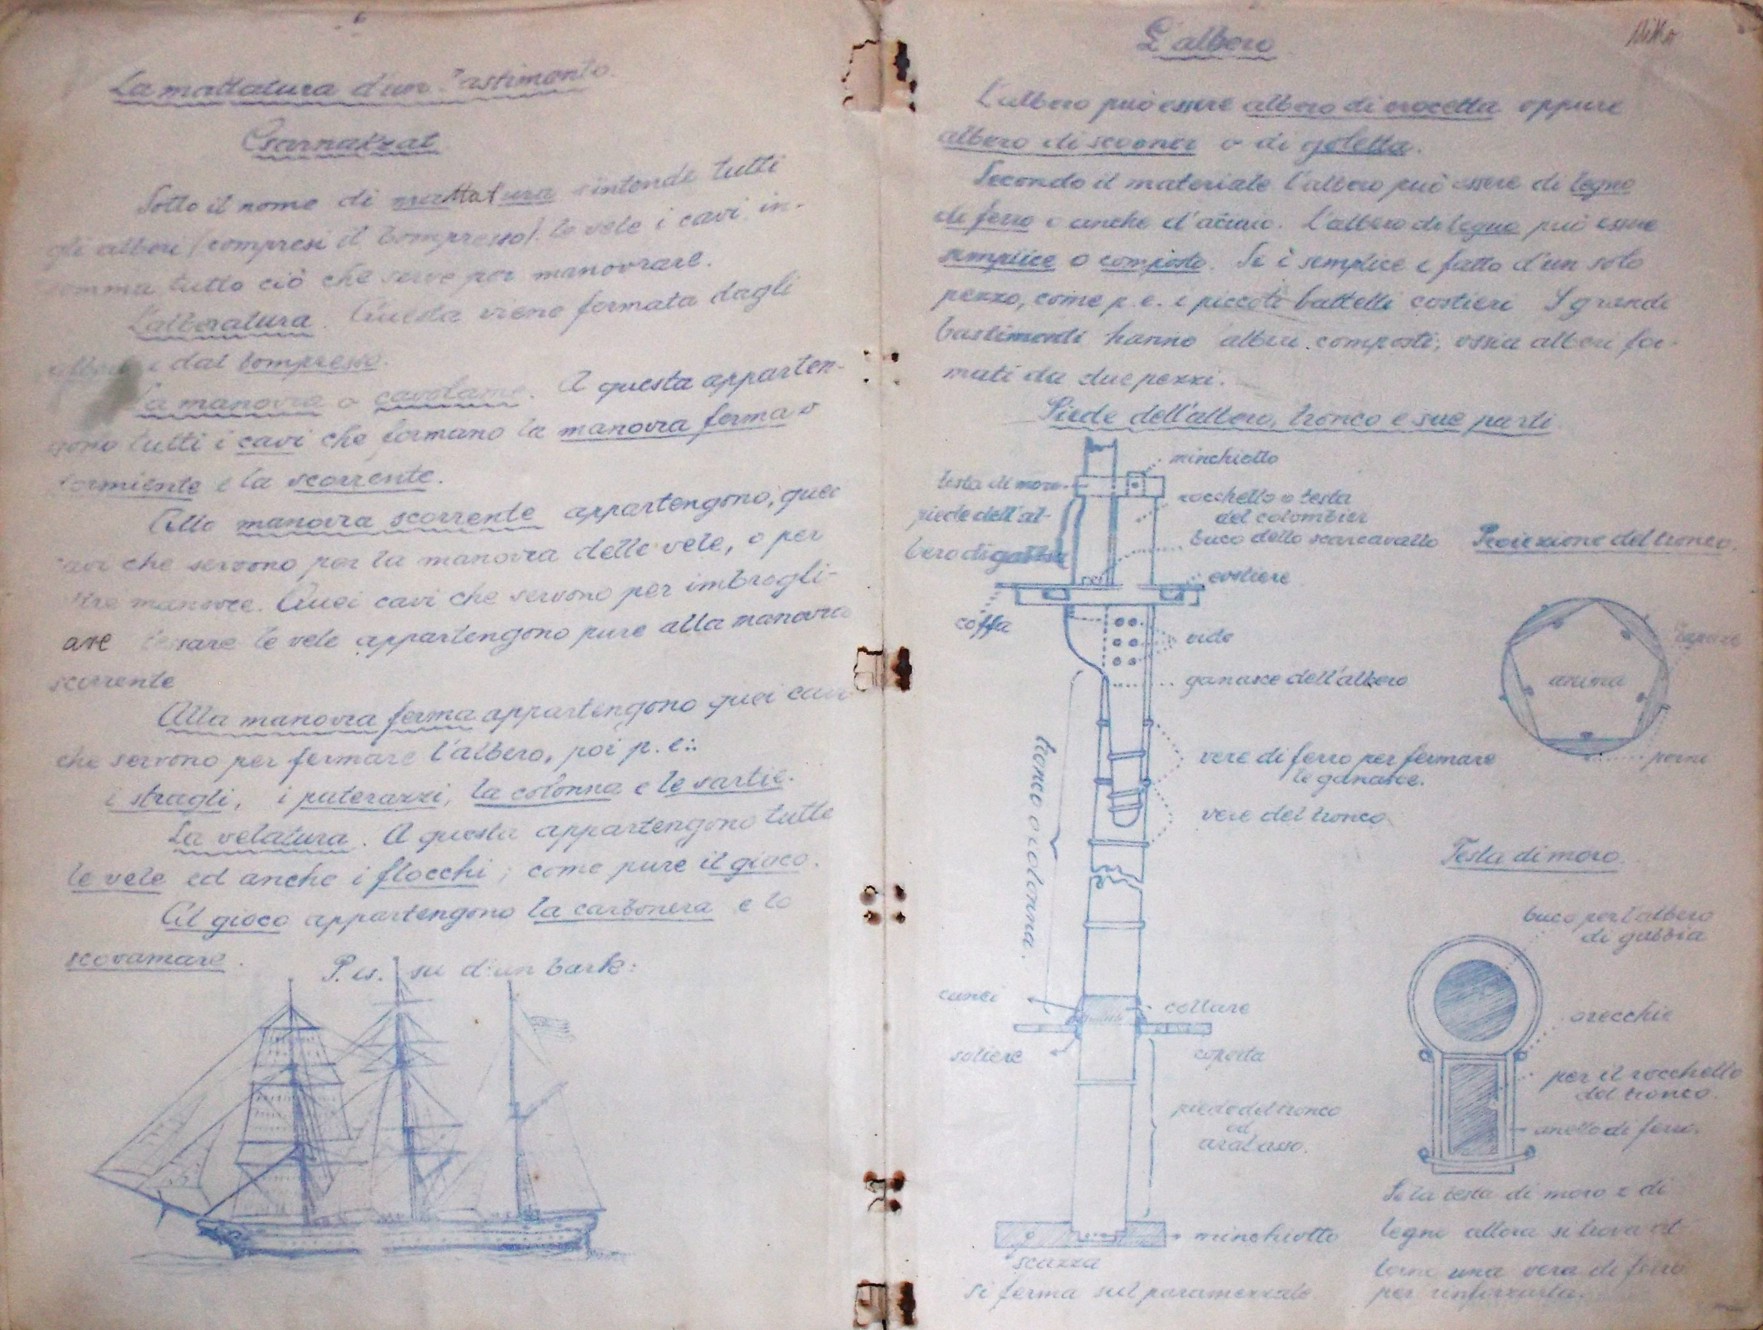 La mattatura d'un bastimento.
Csarnakzat
Sotto il nome di mattatura s'intende tutti
gli alberi (compresi il bompresso), le vele i cavi in-
somma tutto ciò che serve per manovrare.
L'alberatura. Questa viene formata dagli
alberi e dal bompresso.
La manovra o cavolame. A questa apparten-
gono tutti i cavi che formano la manovra ferma o
dormiente e la scorrente.
Alla manovra scorrente appartengono, quei
cavi che servono per la manovra delle vele, o per
altre manovre. Quei cavi che servono per imbrogli-
are le vele appartengono pure alla manovra
scorrente
Alla manovra ferma appartengono quei cavi
che servono per fermare l'albero, poi p. e.:
i stragli, i paterazzi, la colonna e le sartie.
La velatura. A questa appartengono tutte
le vele ed anche i flocchi, come pure il gioco.
Al gioco appartengono la carbonera e lo
scovamare.
su d'un bark:
L'albero
L'albero può essere albero di crocetta oppure
albero di scooner o di goletta.
Secondo il materiale l'albero può essere di legno
di ferro o anche d'aciaio. L'albero di legno può essere
semplice o composto. Se è semplice e fatto d'un solo
pezzo, come p. e. i piccoli battelli costieri I grandi
bastimenti hanno alberi composti, ossia alberi for-
mati da due pezzi.
Piede dell'albero, tronco e sue parti
minchiotto
testa di moro
rocchello o testa
del colombier
piede dell'al-
bero di gabbia
buco dello scarcavallo
Proiezione del tronco.
costiere
coffa
vide
lapaze
ganasce dell'albero
anima
tronco o colonna.
vere di ferro per fermare
le ganasce.
perni
vere del tronco
Testa di moro.
buco per l'albero
di gabbia
cunei
collare
orecchie
soliere
coperta
per il rocchello
del tronco.
piede del tronco
od
anello di ferro.
Se la testa di moro è di
legno allora si trova at
torno una vera di ferro
per rinforzarla.
minchiotto
scazza
si ferma sul paramezzale.